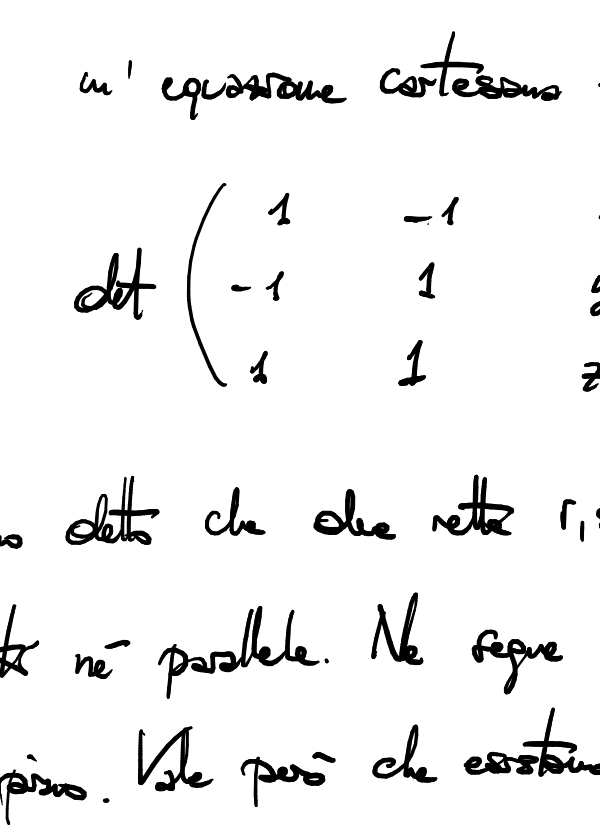 un' equazione cartesiana
1 -1
det ( -1 1
1 1 z
detto che due rette r, s
né parallele. Ne segue
Vale però che esistano